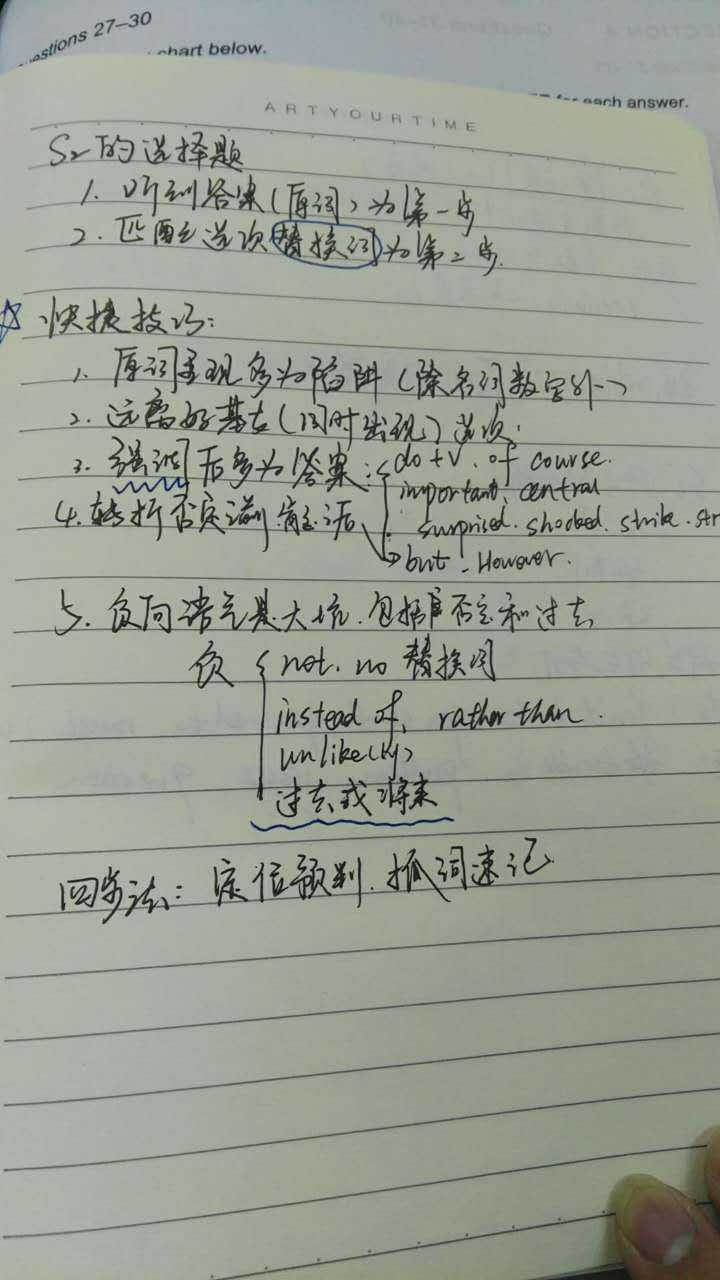 estions 27–30
chart below.
for each answer.
ARTYOURTIME
S2的选择题
1. 听到答案(原词)为第一步
2. 匹配选项替换词为第二步.
☆ 快捷技巧:
1. 原词重现多为陷阱(除名词数字外)
2. 远离好基友(同时出现)选项.
3. 强调后多为答案: do+v. of course.
important, central
4. 转折否定 surprised. shocked. strike. str
but. However.
5. 负向语气是大坑. 包括否定和过去
负 not. no 替换词
instead of, rather than.
unlike(ly)
过去或将来
四步法: 定位预判. 抓词速记